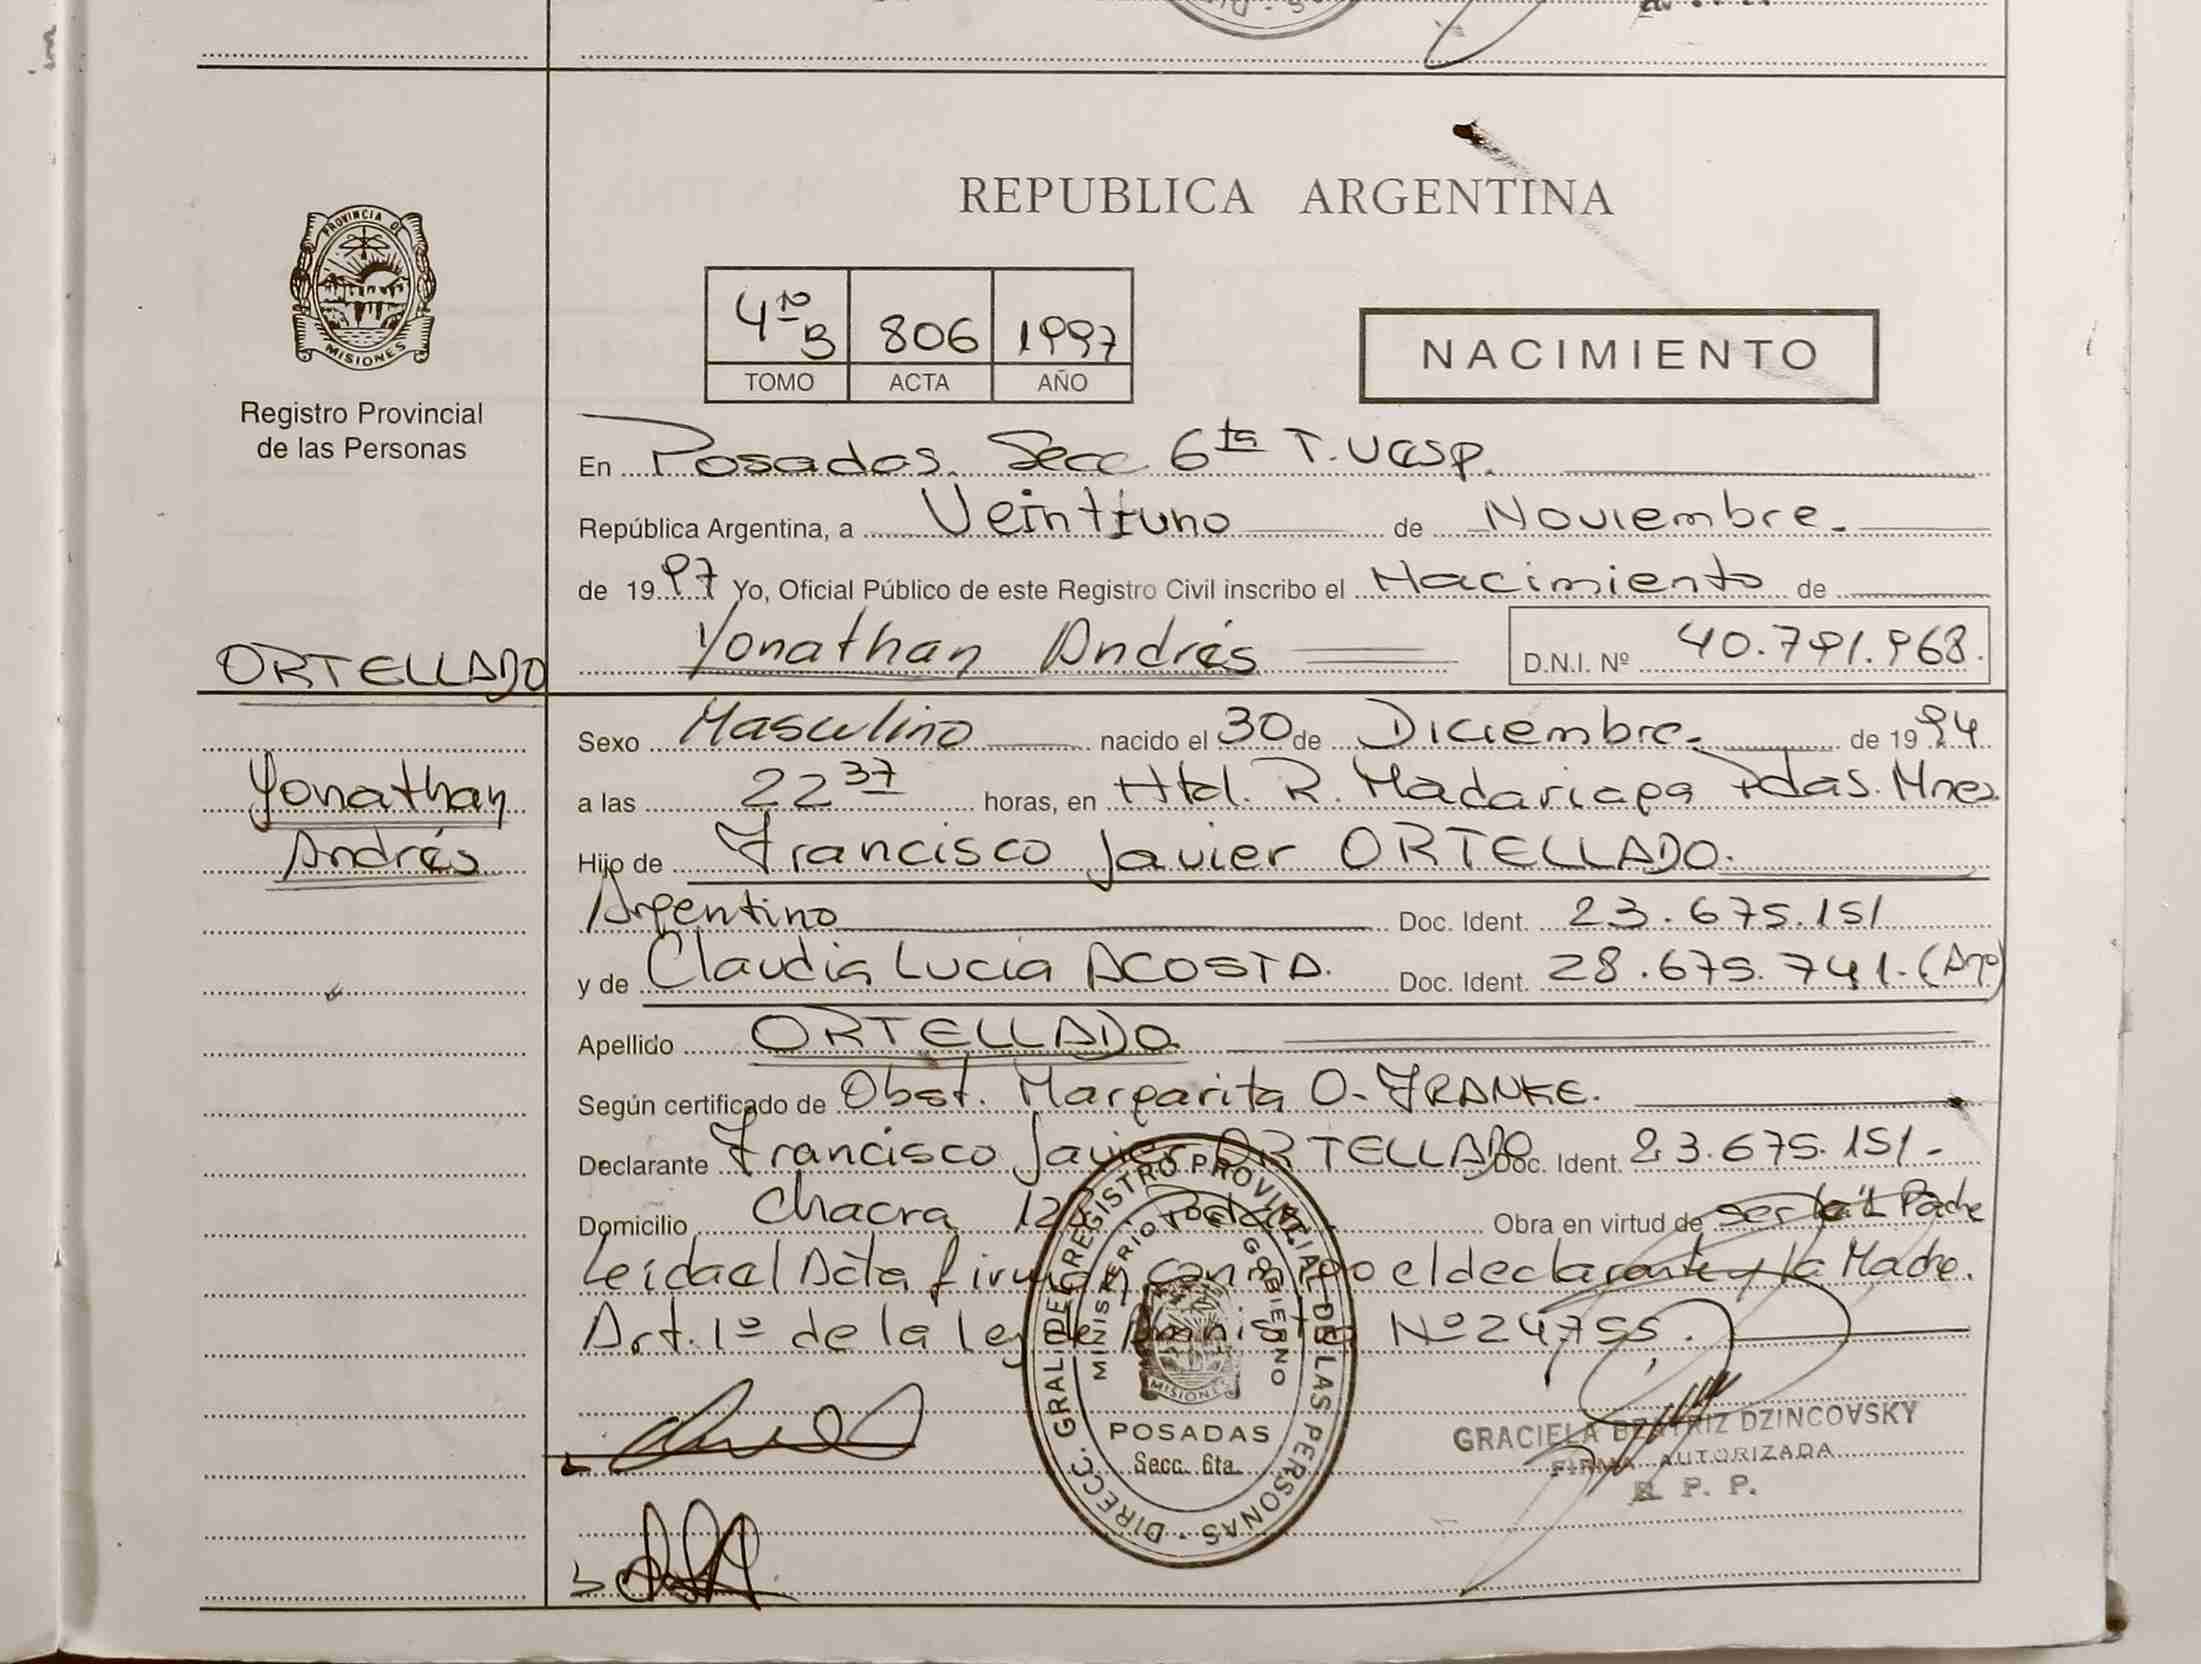 PROVINCIA DE
MISIONES
Registro Provincial
de las Personas
ORTELLADO
Yonathan
Andrés
REPUBLICA ARGENTINA
4to B 806 1997
TOMO ACTA AÑO
NACIMIENTO
En Posadas. Secc 6ta T.
República Argentina, a Veintiuno de Noviembre.
de 1997 Yo, Oficial Público de este Registro Civil inscribo el Nacimiento de
Yonathan Andrés D.N.I. Nº 40.791.968.
Sexo Masculino nacido el 30 de Diciembre. de 1994
a las 22 37 horas, en Htal. R. Madariaga Pdas. Mnes
Hijo de Francisco Javier ORTELLADO.
Argentino Doc. Ident. 23.675.151
y de Claudia Lucia ACOSTA. Doc. Ident. 28.675.741. (Arg)
Apellido ORTELLADO
Según certificado de Obst. Margarita O. FRANKE.
Declarante Francisco Javier ORTELLADO Doc. Ident. 23.675.151-
Domicilio Chacra Obra en virtud de ser el Padre
Leida el Acta firman conmigo el declarante y la Madre.
Art. 1º de la ley de Amnistia Nº 24755.
DIRECC. GRAL. DEL REGISTRO PROVINCIAL DE LAS PERSONAS
MINISTERIO DE GOBIERNO
MISIONES
POSADAS
Secc. 6ta.
GRACIELA BEATRIZ DZINCOVSKY
FIRMA AUTORIZADA
R. P. P.